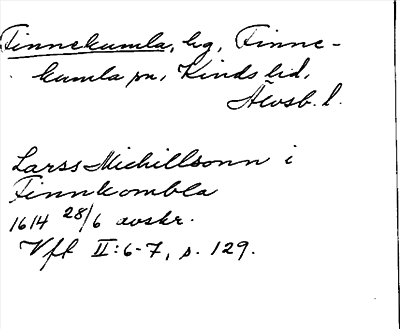 Finnekumla, hg, Finne-
kumla sn, Kinds hd,
Älvsb. l.
Larss Michillsonn i
Finnkombla
1614 28/6 avskr.
Vft II:6-7, s. 129.